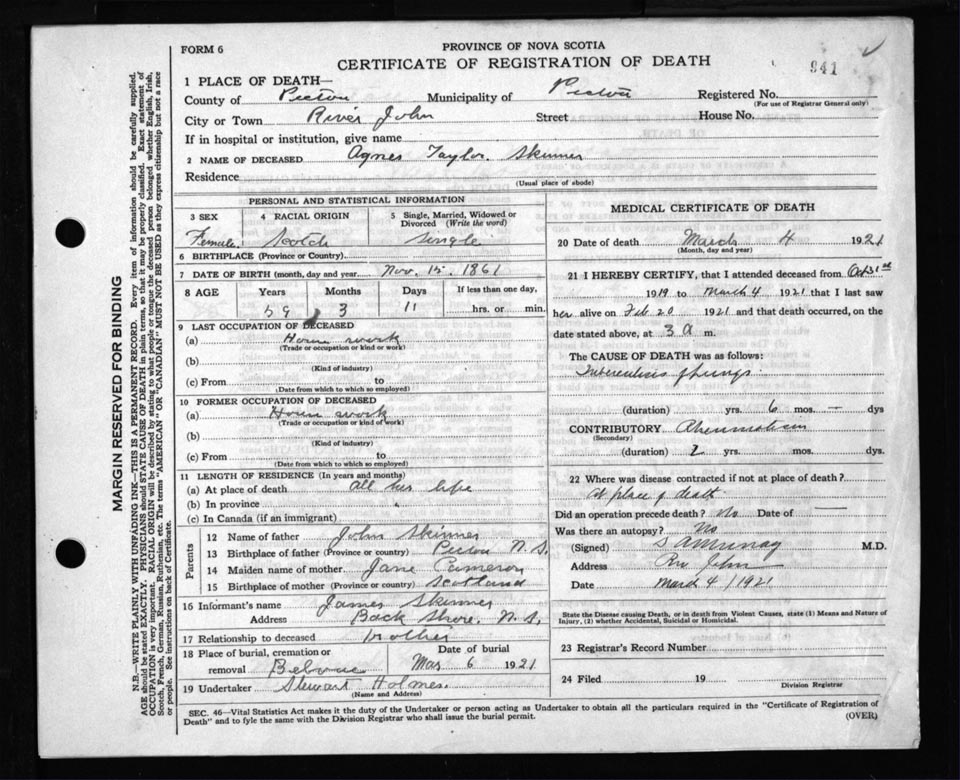 FORM 6
PROVINCE OF NOVA SCOTIA
CERTIFICATE OF REGISTRATION OF DEATH
941
1 PLACE OF DEATH—
County of Pictou Municipality of Pictou Registered No.
(For use of Registrar General only)
City or Town River John Street House No.
If in hospital or institution, give name
2 NAME OF DECEASED Agnes Taylor Skinner
Residence
(Usual place of abode)
PERSONAL AND STATISTICAL INFORMATION
3 SEX 4 RACIAL ORIGIN 5 Single, Married, Widowed or Divorced (Write the word)
Female Scotch Single
6 BIRTHPLACE (Province or Country)
7 DATE OF BIRTH (month, day and year) Nov. 15. 1861
8 AGE Years Months Days If less than one day,
59 3 11 hrs. or min.
9 LAST OCCUPATION OF DECEASED
(a) House work
(Trade or occupation or kind or work)
(b)
(Kind of industry)
(c) From to
(Date from which to which so employed)
10 FORMER OCCUPATION OF DECEASED
(a) House work
(Trade or occupation or kind of work)
(b)
(Kind of industry)
(c) From to
(Date from which to which so employed)
11 LENGTH OF RESIDENCE (In years and months)
(a) At place of death All her life
(b) In province "
(c) In Canada (if an immigrant)
Parents
12 Name of father John Skinner
13 Birthplace of father (Province or country) Pictou N. S.
14 Maiden name of mother Jane Cameron
15 Birthplace of mother (Province or country) Scotland
16 Informant's name James Skinner
Address Back Shore. N. S.
17 Relationship to deceased brother
18 Place of burial, cremation or removal Belvue Date of burial Mar 6 1921
19 Undertaker Stewart Holmes.
(Name and Address)
MEDICAL CERTIFICATE OF DEATH
20 Date of death March 4 1921
(Month, day and year)
21 I HEREBY CERTIFY, that I attended deceased from Oct 31st
1919 to March 4 1921 that I last saw
her alive on Feb 20 1921 and that death occurred, on the
date stated above, at 3 a m.
The CAUSE OF DEATH was as follows:
Tuberculosis of lungs.
(duration) yrs. 6 mos. — dys
CONTRIBUTORY Rheumatism
(Secondary)
(duration) 2 yrs. mos. dys.
22 Where was disease contracted if not at place of death?
at place of death
Did an operation precede death? No Date of —
Was there an autopsy? No
(Signed) S A Murray M.D.
Address Riv John
Date March 4/1921
State the Disease causing Death, or in death from Violent Causes, state (1) Means and Nature of
Injury, (2) whether Accidental, Suicidal or Homicidal.
23 Registrar's Record Number
24 Filed 19
Division Registrar
SEC. 46—Vital Statistics Act makes it the duty of the Undertaker or person acting as Undertaker to obtain all the particulars required in the "Certificate of Registration of
Death" and to fyle the same with the Division Registrar who shall issue the burial permit. (OVER)
MARGIN RESERVED FOR BINDING
N.B.—WRITE PLAINLY WITH UNFADING INK—THIS IS A PERMANENT RECORD. Every item of information should be carefully supplied.
AGE should be stated EXACTLY. PHYSICIANS should STATE CAUSE OF DEATH in plain terms, so that it may be properly classified. Exact statement of
OCCUPATION is very important. RACIAL ORIGIN will be described by stating to what people or tongue the deceased person belonged whether English, Irish,
Scotch, French, German, Russian, Ruthenian, etc. The terms "AMERICAN" OR "CANADIAN" MUST NOT BE USED as they express citizenship but not a race
or people. See instructions on back of Certificate.